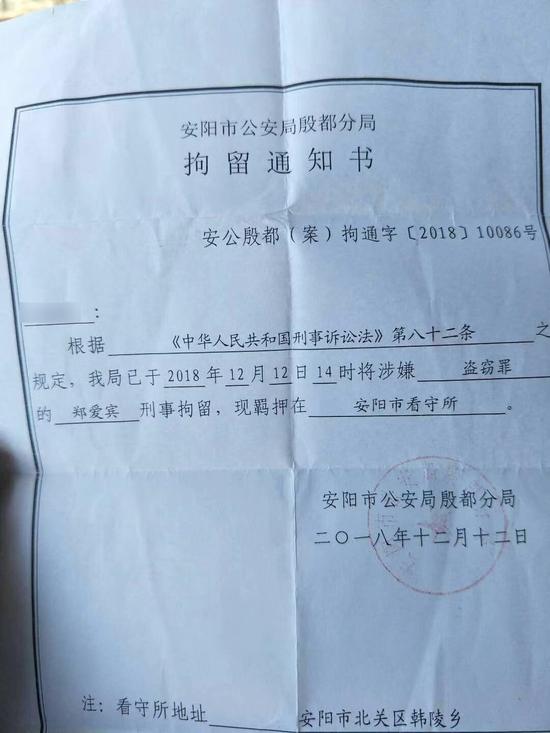 安阳市公安局殷都分局
拘留通知书
安公殷都（案）拘通字〔2018〕10086号
：
根据 《中华人民共和国刑事诉讼法》第八十二条 之
规定，我局已于 2018 年 12 月 12 日 14 时将涉嫌 盗窃罪
的 郑爱宾 刑事拘留，现羁押在 安阳市看守所 。
安阳市公安局殷都分局
二〇一八年十二月十二日
注：看守所地址 安阳市北关区韩陵乡